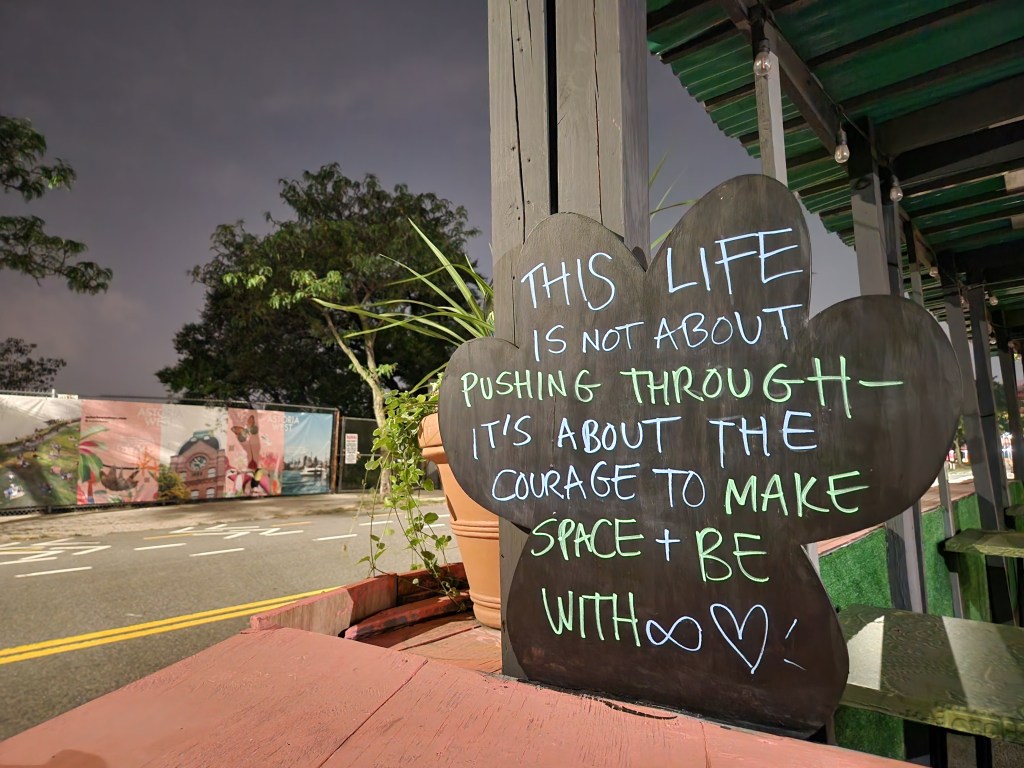 THIS LIFE
IS NOT ABOUT
PUSHING THROUGH—
IT'S ABOUT THE
COURAGE TO MAKE
SPACE + BE
WITH ∞ ♡